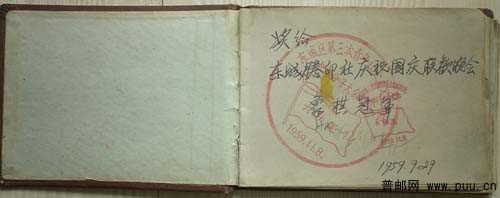 奖给
东城誊印社庆祝国庆联欢晚会
象棋冠军
东城区第三次
1959.11.8.
1959.9.29
普邮网 www.puu.cn